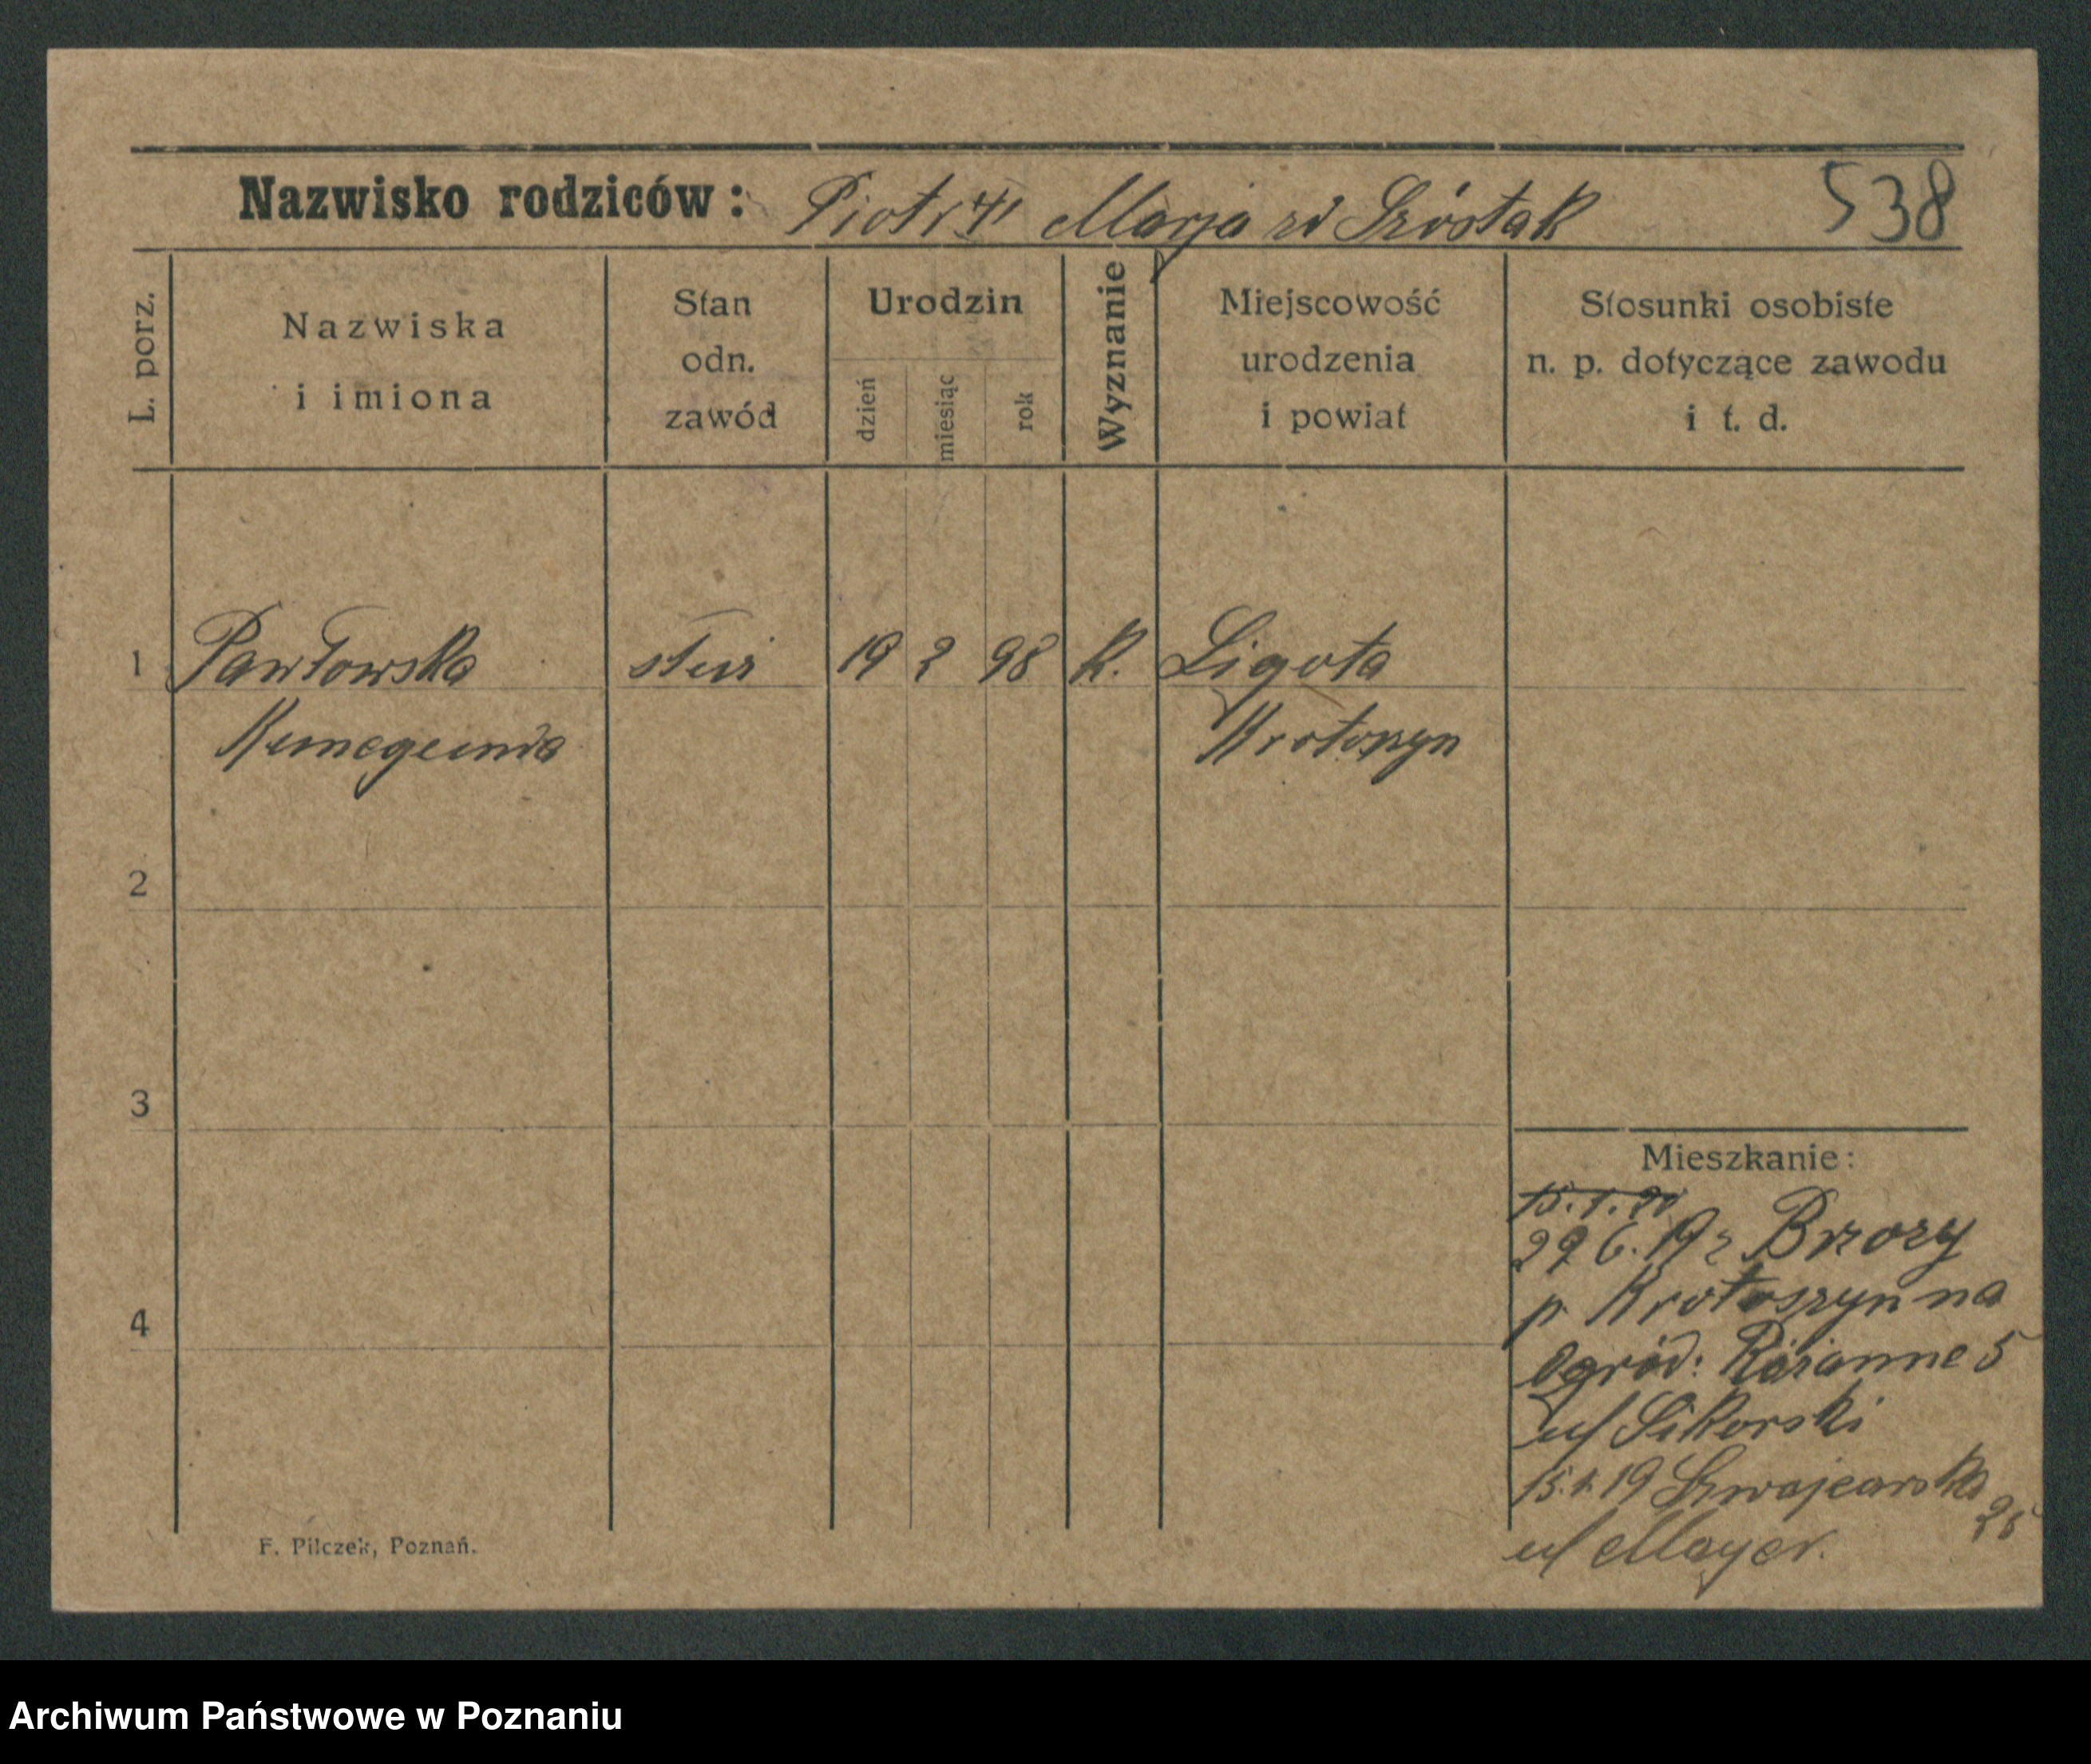 Nazwisko rodziców: Piotr Marja zd Szóstak 538
L. porz.
Nazwiska
i imiona
Stan
odn.
zawód
Urodzin
dzień
miesiąc
rok
Wyznanie
Miejscowość
urodzenia
i powiat
Stosunki osobiste
n. p. dotyczące zawodu
i t. d.
1 Pawłowska 19 2 98 k. Ligota
Kunegunda Krotoszyn
2
3
4
Mieszkanie:
15.1.20
29 6. 19 z Brzozy
p Krotoszyn na
Ogród: 5
u/ Sikorski
15.1.19 Szwajcarska
25
u/ Mayer.
F. Pilczek, Poznań.
Archiwum Państwowe w Poznaniu